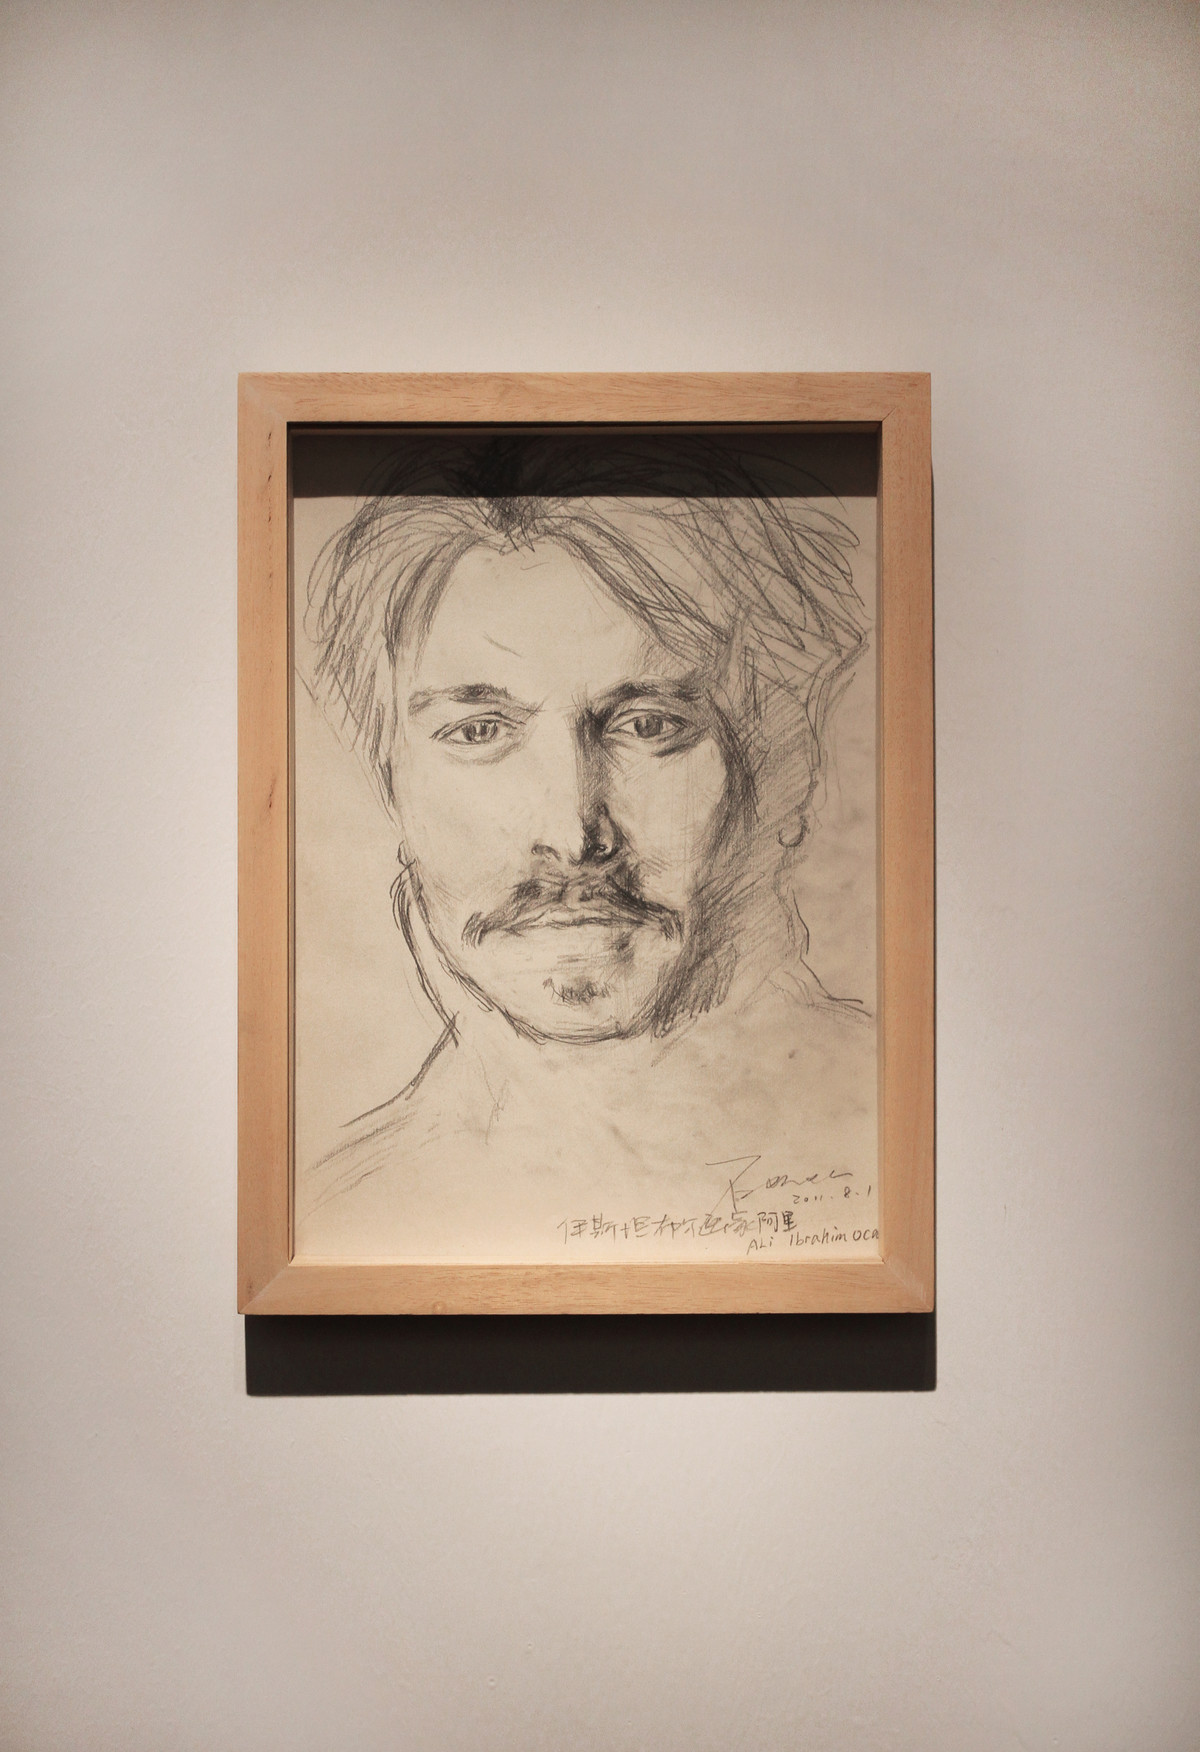 2011.8.1
伊斯坦布尔画家阿里
ALi Ibrahim OCA